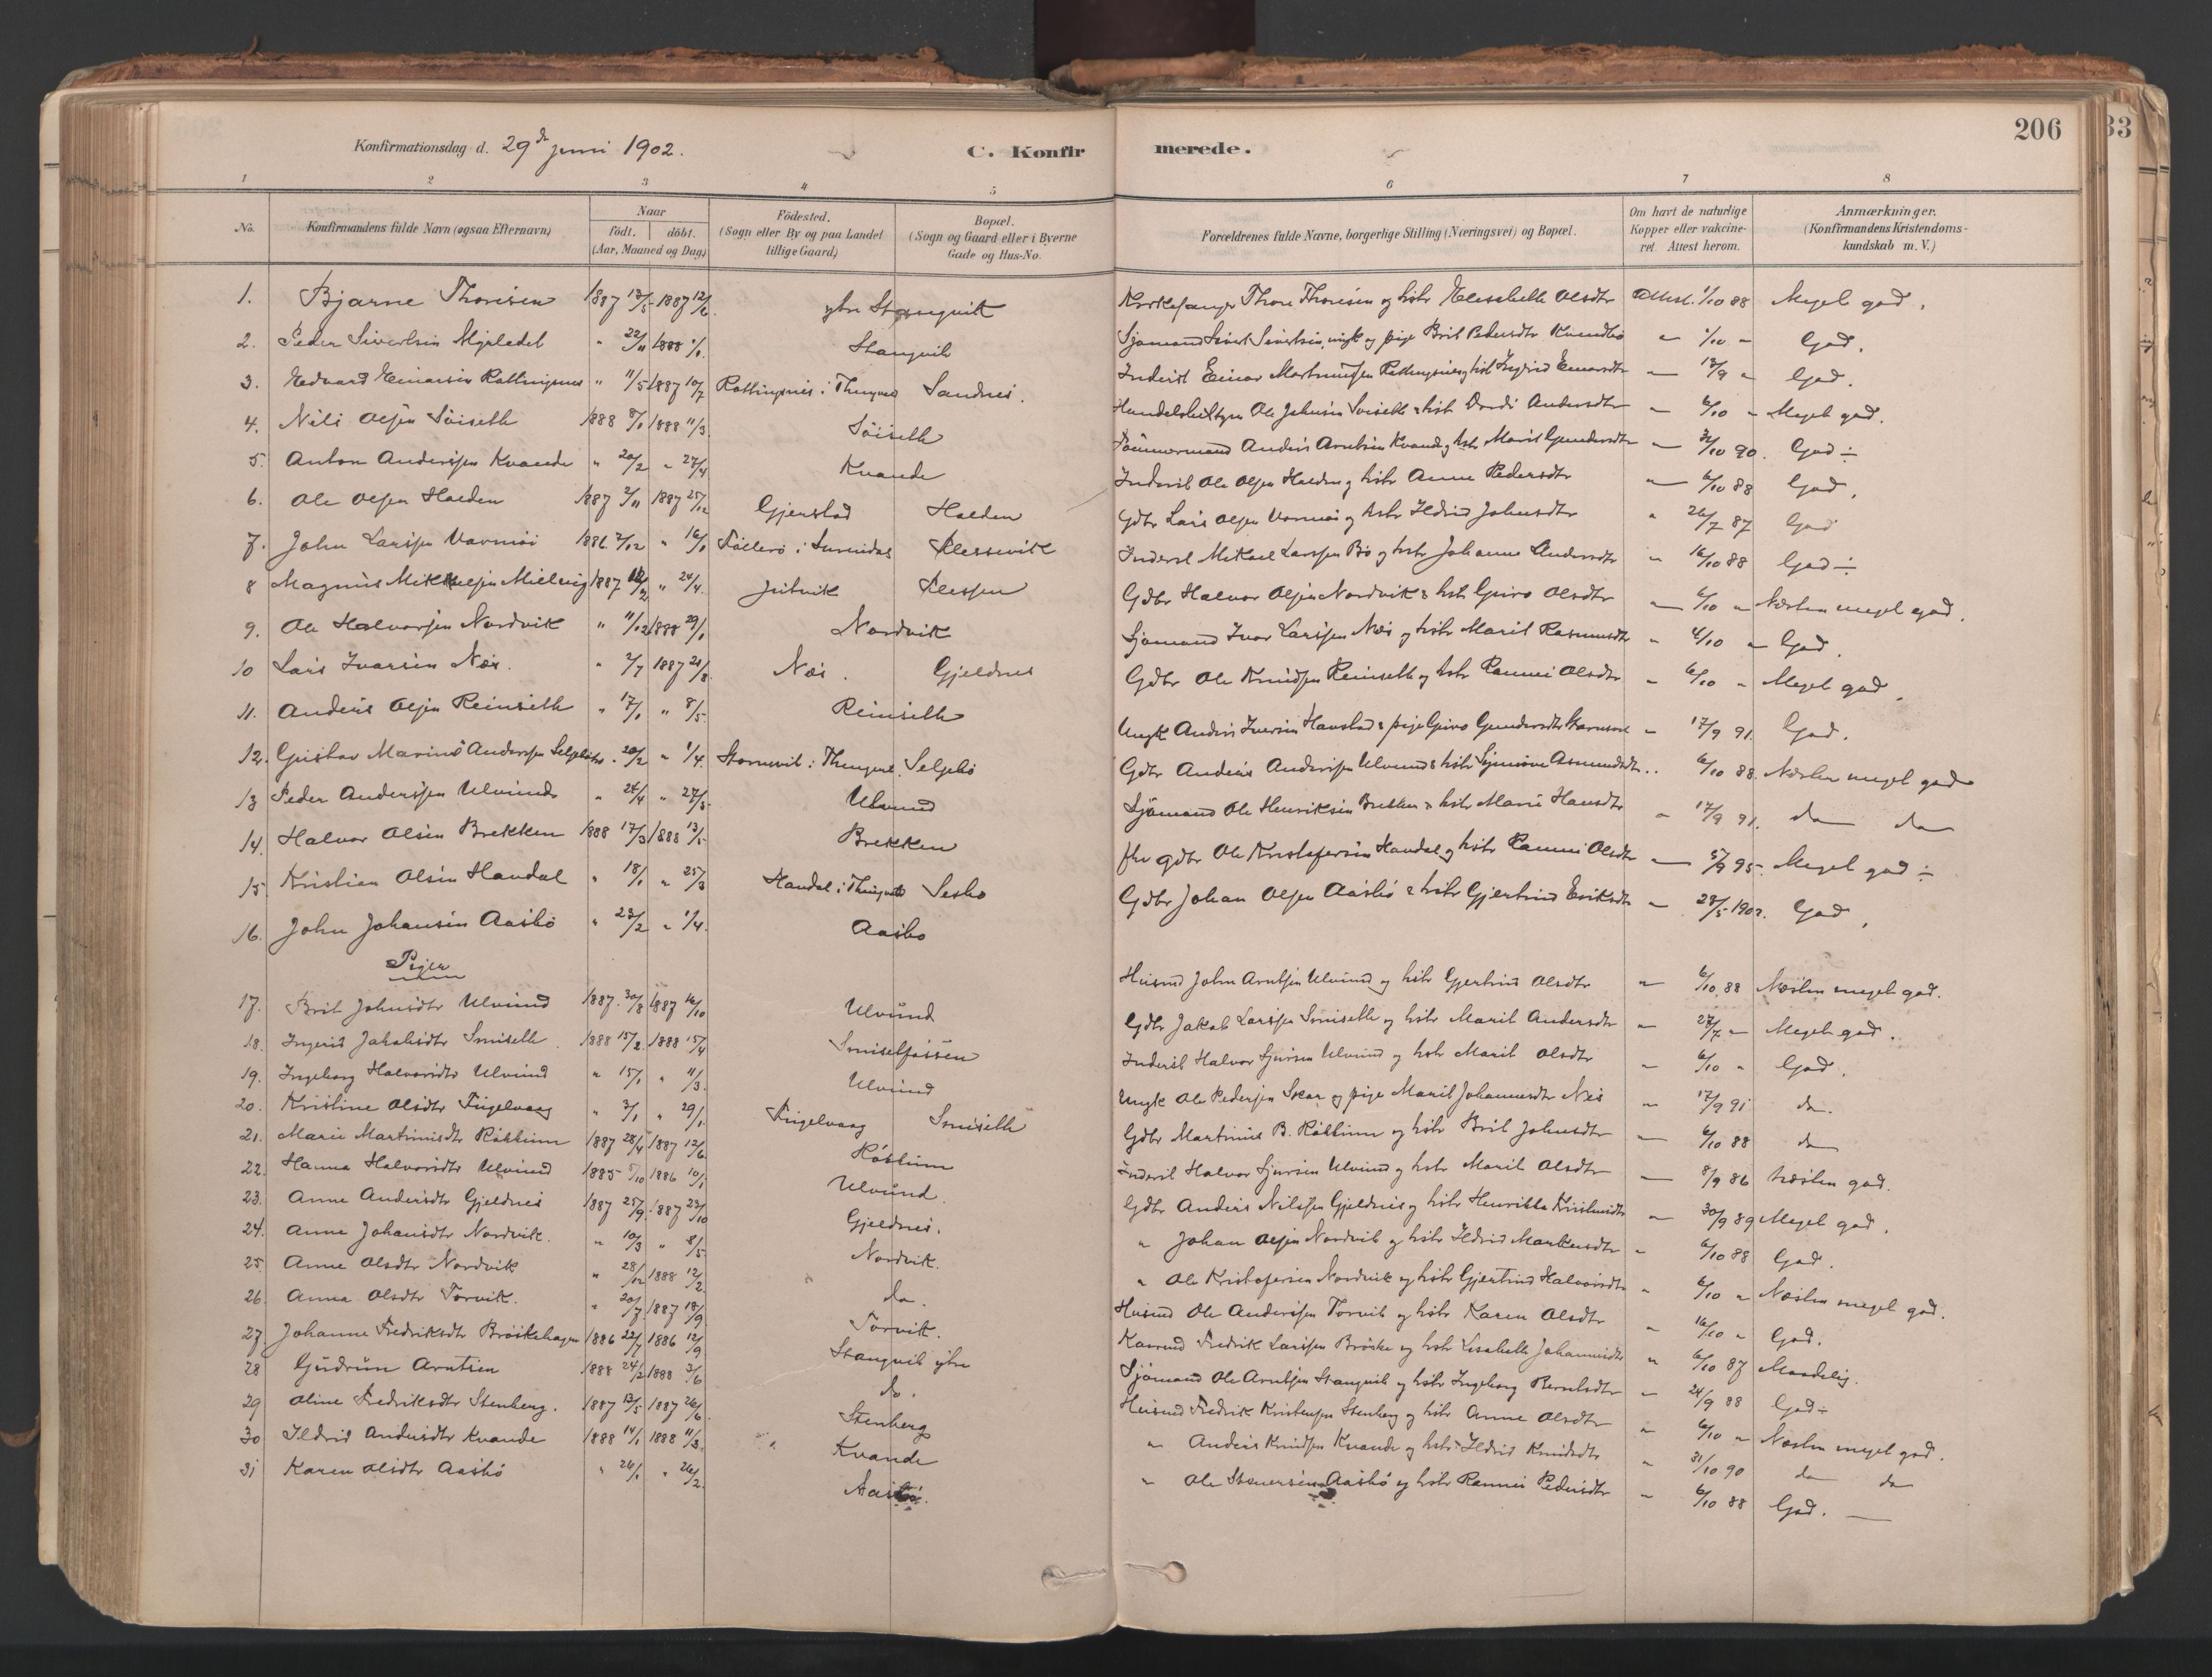 Konfirmationsdag d. 29de juni 1902.
C. Konfirmerede.
206
33
1 2 3 4 5 6 7 8
No. Konfirmandens fulde Navn (ogsaa Efternavn) Naar födt. döbt. (Aar, Maaned og Dag) Födested. (Sogn eller By og paa Landet tillige Gaard) Bopæl. (Sogn og Gaard eller i Byerne Gade og Hus-No. Forældrenes fulde Navne, borgerlige Stilling (Næringsvei) og Bopæl. Om havt de naturlige Kopper eller vakcineret. Attest herom. Anmærkninger. (Konfirmandens Kristendomskundskab m. V.)
1. Bjarne Thoresen 1887 13/5 1887 12/6 ytre Stangvik Kirkesanger Thore Thoresen og hstr Elisabeth Olsdtr Attest. 1/10 88 Meget god.
2. Peder Sivertsen " 22/11 1888 1/1 Stangvik Sjömand Sivert Sivertsen, ungk og pige Brit Pedersdtr " 1/10 " God.
3. Edvard Einarsen Rottingsnes " 11/5 1887 10/7 Rottingsnes i Sandnes. Inderst Einar Martinussen Rottingsnes og hstr Ingrid Einarsdtr " 13/9 " God.
4. Nils Olsen Söiseth 1888 8/1 1888 11/3 Söiseth Ole Johnsen Soiseth & hstr Dordi Andersdtr " 6/10 " Meget god.
5. Anton Anderssen Kvande " 20/2 " 27/4 Kvande Tömmermand Anders Arntsen Kvande og hstr Marit Gundersdtr " 31/10 90. God ÷
6. Ole Olsen Halden 1887 2/11 1887 25/12 Gjerstad Halden Inderst Ole Olsen Halden og hstr Anne Pedersdtr " 6/10 88 God.
7. John Larssen Vavmoi 1886 7/12 " 16/1 i Surendal Gdbr Lars Olsen Vavmoi og hstr Ildrid Johnsdtr " 26/7 87 God
8 Magnus Mikkelsen 1887 12/2 " 24/4. Jutvik Inderst Mikael Larssen Bö og hstr Johanne Andersdtr " 16/10 88 God ÷
9. Ole Halvorsen Nordvik " 11/12 1888 29/1 Nordvik Gdbr Halvor Olsen Nordvik & hstr Guro Olsdtr " 6/10 " Næsten meget god.
10 Lars Ivarsen Næs. " 2/7 1887 21/8 Næs. Gjeldnes Sjömand Ivar Larssen Næs og hstr Marit Rasmusdtr " 6/10 " God.
11. Anders Olsen Reinseth " 17/1 " 8/5. Reinseth Gdbr Ole Knudsen Reinseth og hstr Rannei Olsdtr " 6/10 " Meget god.
12. Gustav Marius Andersen " 20/2 " 1/4. Seljebö Ungk Anders Iversen Havstad & pige Guro Gundersdtr " 17/9 91. God.
13 Peder Anderssen Ulvund " 24/4 " 27/5 Ulvund Gdbr Anders Anderssen Ulvund & hstr Synnöve Asmundsdtr " 6/10 88. Næsten meget god
14. Halvor Olsen Brekken 1888 17/3 1888 13/5 Brekken Sjömand Ole Henriksen Brekken & hstr Marie Hansdtr " 17/9 91. do do
15. Kristian Olsen Handal " 18/1 " 25/3 Handal i Sesbo fhv gdbr Ole Kristofersen Handal og hstr Rannei Olsdtr " 5/9 95. Meget god ÷
16. John Johansen Aasbö " 23/2 " 1/4. Aasbo Gdbr Johan Olsen Aasbö & hstr Gjertrud Eriksdtr " 28/5 1902. God.
Piger
17. Brit Johnsdtr Ulvund 1887. 30/8 1887 16/10 Ulvund Husmd John Arntsen Ulvund og hstr Gjertrud Olsdtr " 6/10 88 Næsten meget god.
18. Ingerid Jakobsdtr Smiseth 1888 15/2. 1888 15/4 Smisetfossen Gdbr Jakob Larssen Smiseth og hstr Marit Andersdtr " 27/7 " Meget god.
19. Ingeborg Halvorsdtr Ulvund " 15/1 " 11/3. Ulvund Inderst Halvor Sjursen Ulvund og hstr Marit Olsdtr " 6/10 " God.
20. Kristine Olsdtr Fugelvaag " 3/1 " 29/1. Fugelvaag Smiseth Ungk Ole Pedersen Skar og pige Marit Johannesdtr Nes " 17/9 91 do.
21. Marie Martinusdtr Röklum 1887 28/4 1887 12/6 Röklum Gdbr Martinus B. Röklum og hstr Brit Johnsdtr " 6/10 88 do
22. Hanna Halvorsdtr Ulvund 1885 5/10 1886 10/1 Ulvund. Inderst Halvor Sjursen Ulvund og hstr Marit Olsdtr " 8/9 86 næsten god.
23. Anne Andersdtr Gjeldnes 1887 25/9. 1887 23/10 Gjeldnes. Gdbr Anders Nilssen Gjeldnes og hstr Henrikke Kristensdtr " 30/9 89 Meget god.
24. Anne Johansdtr Nordvik. " 10/3 " 8/5. Nordvik. " Johan Olsen Nordvik og hstr Ildrid Markusdtr " 6/10 88 God.
25. Anne Olsdtr Nordvik " 28/12 1888 12/2. do. " Ole Kristofersen Nordvik og hstr Gjertrud Halvorsdtr " 6/10 " Næsten meget god.
26. Anna Olsdtr Torvik. " 20/7 1887 18/9 Torvik. Husmd Ole Anderssen Torvik og hstr Karen Olsdtr " 16/10 " God.
27 Johanne Fredriksdtr Bröskehagen 1886 22/7 1886 12/9 Stangvik ytre Fredrik Larssen Bröske og hstr Lisabeth Johannesdtr " 6/10 87 Maadelig.
28 Gudrun Arntsen 1888 24/2 1888 3/6 do. Sjömand Ole Arntsen Stangvik og hstr Ingeborg Berntsdtr " 24/9 88 God ÷
29 Oline Fredriksdtr Stenberg. 1887 13/5 1887 26/6 Stenberg Husmd Fredrik Kristensen Stenberg og hstr Anne Olsdtr " 6/10 " Næsten meget god.
30 Ildrid Andersdtr Kvande 1888 14/1 1888 11/3. Kvande " Anders Knudsen Kvande og hstr Ildrid Knudsdtr " 31/10 90 do do
31 Karen Olsdtr Aasbö " 24/1 " 26/2. Aasbö. " Ole Aasbö og hstr Rannei Pedersdtr " 6/10 88 God.